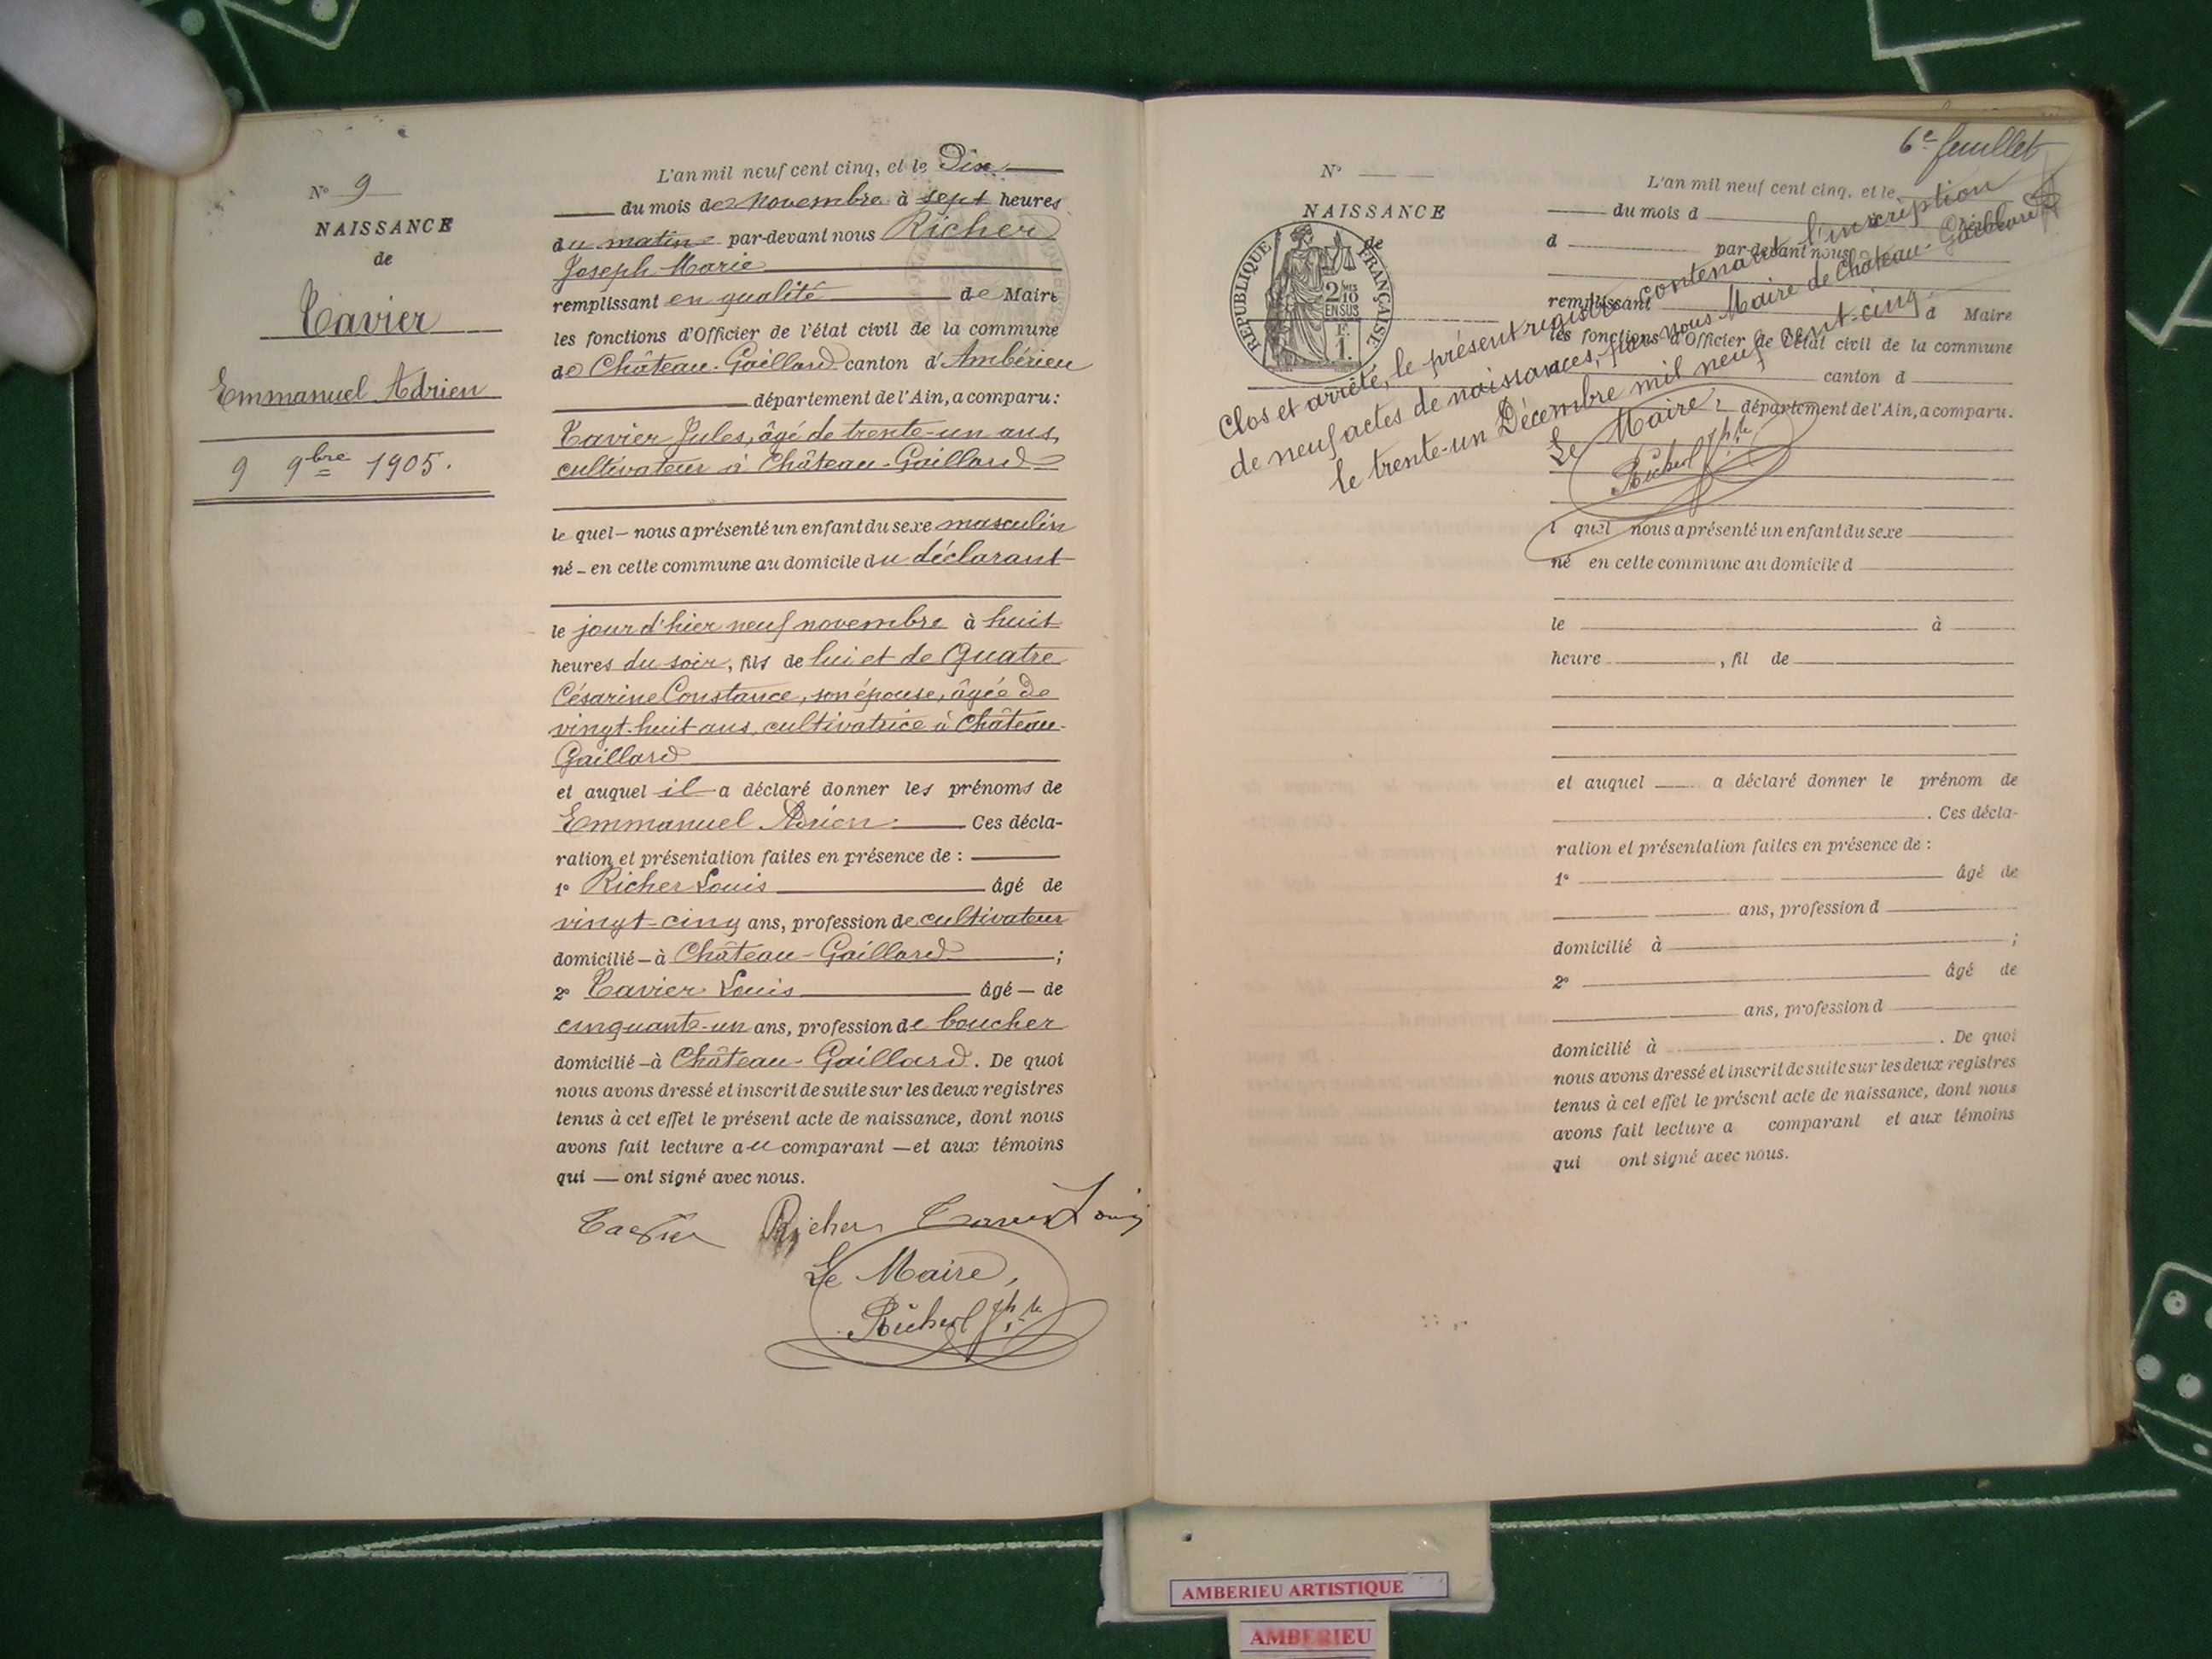 N° 9
NAISSANCE
de
Tavier
Emmanuel Adrien
9 9bre 1905.
L'an mil neuf cent cinq, et le Dix
du mois de Novembre à sept heures
du matin par-devant nous Richer
Joseph Marie
remplissant en qualité de Maire
les fonctions d'Officier de l'état civil de la commune
de Château-Gaillard canton d'Ambérieu
département de l'Ain, a comparu :
Tavier Jules, âgé de trente-un ans,
cultivateur à Château-Gaillard
le quel — nous a présenté un enfant du sexe masculin
né — en cette commune au domicile du déclarant
le jour d'hier neuf novembre à huit
heures du soir, fils de lui et de Quatre
Césarine Constance, son épouse, âgée de
vingt-huit ans, cultivatrice à Château-
Gaillard
et auquel il a déclaré donner les prénoms de
Emmanuel Adrien. Ces décla-
ration et présentation faites en présence de :
1° Richer Louis âgé de
vingt-cinq ans, profession de cultivateur
domicilié — à Château-Gaillard ;
2° Tavier Louis âgé — de
cinquante-un ans, profession de boucher
domicilié — à Château-Gaillard. De quoi
nous avons dressé et inscrit de suite sur les deux registres
tenus à cet effet le présent acte de naissance, dont nous
avons fait lecture au comparant — et aux témoins
qui — ont signé avec nous.
Tavier Richer Tavier Louis
Le Maire,
Richer Jph
6e feuillet
N°
NAISSANCE
de
REPUBLIQUE FRANÇAISE
2/10 MES
EN SUS
F.
1.
Clos et arrêté, le présent registre contenant l'inscription
de neuf actes de naissances, par nous Maire de Château-Gaillard
le trente-un Décembre mil neuf cent-cinq.
Le Maire,
Richer Jph
L'an mil neuf cent cinq, et le
du mois d
d par-devant nous
remplissant d Maire
les fonctions d'Officier de l'état civil de la commune
canton d
département de l'Ain, a comparu.
l quel nous a présenté un enfant du sexe
né en cette commune au domicile d
le à
heure , fil de
et auquel a déclaré donner le prénom de
. Ces décla-
ration et présentation faites en présence de :
1° âgé de
ans, profession d
domicilié à ;
2° âgé de
ans, profession d
domicilié à . De quoi
nous avons dressé et inscrit de suite sur les deux registres
tenus à cet effet le présent acte de naissance, dont nous
avons fait lecture a comparant et aux témoins
qui ont signé avec nous.
AMBERIEU ARTISTIQUE
AMBERIEU